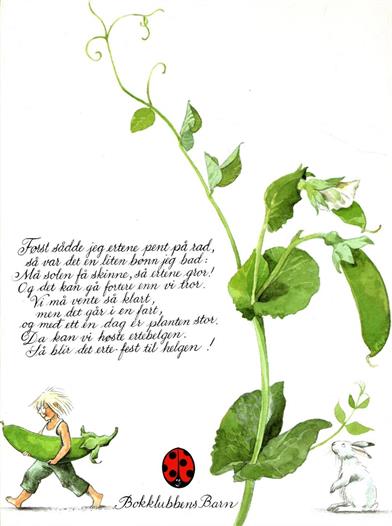 Først sådde jeg ertene pent på rad,
så var det en liten bønn jeg bad:
Må solen få skinne, så ertene gror!
Og det kan gå fortere enn vi tror.
Vi må vente så klart,
men det går i en fart,
og med ett en dag er planten stor.
Da kan vi høste ertebelgen.
Så blir det erte-fest til helgen!
Bokklubbens Barn